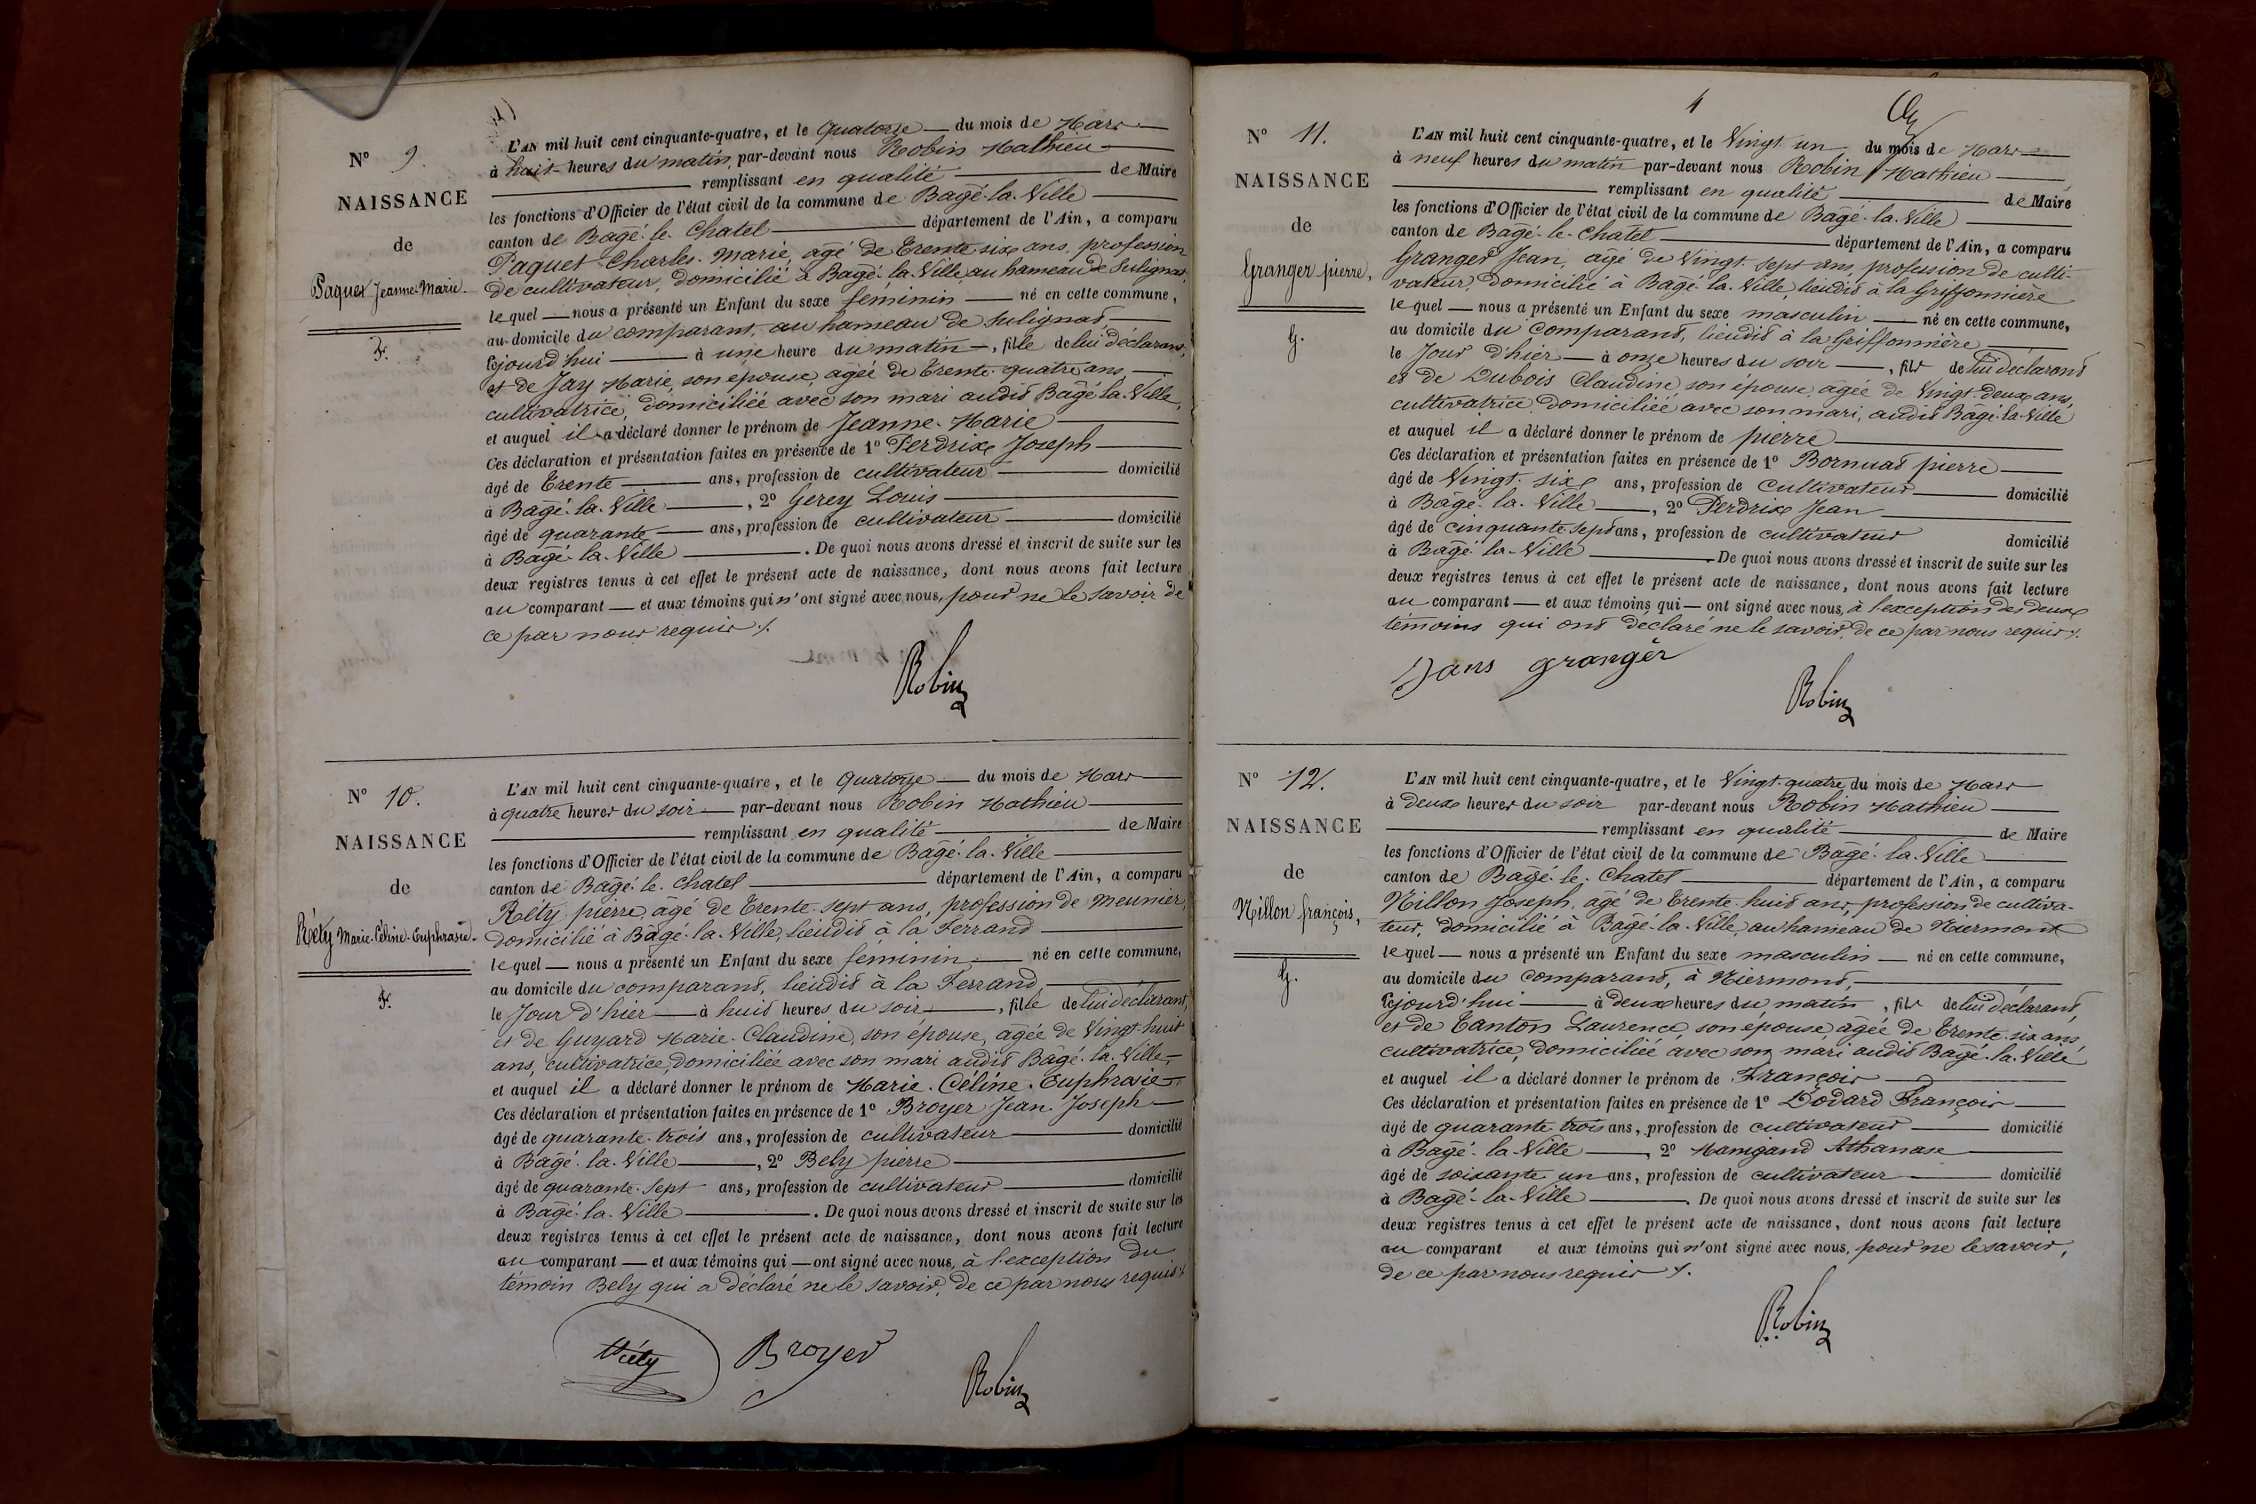 N° 9.
NAISSANCE
de
Paquet Jeanne-Marie.
F.
L'AN mil huit cent cinquante-quatre, et le Quatorze du mois de Mars
à huit heures du matin, par-devant nous Robin Mathieu
remplissant en qualité de Maire
les fonctions d'Officier de l'état civil de la commune de Bagé-la-Ville
canton de Bagé-le-Chatel département de l'Ain, a comparu
Paquet Charles-Marie, agé de Trente-six ans, profession
de cultivateur, domicilié à Bagé-la-Ville, au hameau de Sulignat,
lequel nous a présenté un Enfant du sexe féminin né en cette commune,
au domicile du comparant, au hameau de Sulignat
cejourd'hui à une heure du matin, fille de lui déclarant,
et de Jay Marie, son épouse, agée de Trente-quatre ans,
cultivatrice, domiciliée avec son mari audit Bagé-la-Ville,
et auquel il a déclaré donner le prénom de Jeanne-Marie
Ces déclaration et présentation faites en présence de 1° Perdrix Joseph
âgé de Trente ans, profession de cultivateur domicilié
à Bagé-la-Ville, 2° Gerey Louis
âgé de quarante ans, profession de cultivateur domicilié
à Bagé-la-Ville. De quoi nous avons dressé et inscrit de suite sur les
deux registres tenus à cet effet le présent acte de naissance, dont nous avons fait lecture
au comparant et aux témoins qui n'ont signé avec nous, pour ne le savoir de
ce par nous requis./.
Robin
N° 10.
NAISSANCE
de
Réty Marie-Céline-Euphrasie.
F.
L'AN mil huit cent cinquante-quatre, et le Quatorze du mois de Mars
à quatre heures du soir par-devant nous Robin Mathieu
remplissant en qualité de Maire
les fonctions d'Officier de l'état civil de la commune de Bagé-la-Ville
canton de Bagé-le-Chatel département de l'Ain, a comparu
Réty pierre, âgé de Trente-sept ans, profession de meunier,
domicilié à Bagé-la-Ville, lieudit à la Ferrand
lequel nous a présenté un Enfant du sexe féminin né en cette commune,
au domicile du comparant, lieudit à la Ferrand,
le Jour d'hier à huit heures du soir, fille de lui déclarant,
et de Guyard Marie-Claudine, son épouse, agée de Vingt-huit
ans, cultivatrice, domiciliée avec son mari audit Bagé-la-Ville
et auquel il a déclaré donner le prénom de Marie-Céline-Euphrasie
Ces déclaration et présentation faites en présence de 1° Broyer Jean Joseph
âgé de quarante-trois ans, profession de cultivateur domicilié
à Bagé-la-Ville, 2° Bely pierre
âgé de quarante-sept ans, profession de cultivateur domicilié
à Bagé-la-Ville. De quoi nous avons dressé et inscrit de suite sur les
deux registres tenus à cet effet le présent acte de naissance, dont nous avons fait lecture
au comparant et aux témoins qui ont signé avec nous, à l'exception du
témoin Bely qui a déclaré ne le savoir, de ce par nous requis./.
Réty Broyer Robin
4
N° 11.
NAISSANCE
de
Granger pierre,
G.
L'AN mil huit cent cinquante-quatre, et le Vingt un du mois de Mars
à neuf heures du matin par-devant nous Robin Mathieu
remplissant en qualité de Maire
les fonctions d'Officier de l'état civil de la commune de Bagé-la-Ville
canton de Bagé-le-Chatel département de l'Ain, a comparu
Granger Jean, agé de Vingt-sept ans, profession de culti-
vateur, domicilié à Bagé-la-Ville, lieudit à la Griffonnière
lequel nous a présenté un Enfant du sexe masculin né en cette commune,
au domicile du comparant, lieudit à la Griffonnière
le Jour d'hier à onze heures du soir, fils de lui déclarant
et de Dubois Claudine son épouse, agée de Vingt-deux ans,
cultivatrice domiciliée avec son mari, audit Bagé-la-Ville
et auquel il a déclaré donner le prénom de pierre
Ces déclaration et présentation faites en présence de 1° Bornuat pierre
âgé de Vingt-six ans, profession de Cultivateur domicilié
à Bagé-la-Ville, 2° Perdrix Jean
âgé de cinquante-sept ans, profession de cultivateur domicilié
à Bagé-la-Ville. De quoi nous avons dressé et inscrit de suite sur les
deux registres tenus à cet effet le présent acte de naissance, dont nous avons fait lecture
au comparant et aux témoins qui ont signé avec nous, à l'exception des deux
témoins qui ont déclaré ne le savoir, de ce par nous requis./.
Jans granger
Robin
N° 12.
NAISSANCE
de
Nillon françois,
G.
L'AN mil huit cent cinquante-quatre, et le Vingt-quatre du mois de Mars
à deux heures du soir par-devant nous Robin Mathieu
remplissant en qualité de Maire
les fonctions d'Officier de l'état civil de la commune de Bagé-la-Ville
canton de Bagé-le-Chatel département de l'Ain, a comparu
Nillon Joseph, agé de Trente-huit ans, profession de cultiva-
teur, domicilié à Bagé-la-Ville, au hameau de Niermont
lequel nous a présenté un Enfant du sexe masculin né en cette commune,
au domicile du comparant, à Niermont,
cejourd'hui à deux heures du matin, fils de lui déclarant,
et de Tanton Laurence, son épouse, agée de Trente-six ans,
cultivatrice, domiciliée avec son mari audit Bagé-la-Ville
et auquel il a déclaré donner le prénom de François
Ces déclaration et présentation faites en présence de 1° Dodard François
âgé de quarante-trois ans, profession de cultivateur domicilié
à Bagé-la-Ville, 2° Manigand Athanase
âgé de soixante-un ans, profession de cultivateur domicilié
à Bagé-la-Ville. De quoi nous avons dressé et inscrit de suite sur les
deux registres tenus à cet effet le présent acte de naissance, dont nous avons fait lecture
au comparant et aux témoins qui n'ont signé avec nous, pour ne le savoir,
de ce par nous requis./.
Robin